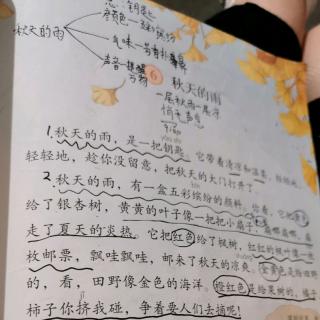 总:钥匙
颜色—五彩缤纷
秋天的雨
气味—
声音
6
秋天的雨
一尾秋雨一尾凉
1.秋天的雨,是一把钥匙。它带着清凉和温柔,轻轻地,
轻轻地,趁你没留意,把秋天的大门打开了。
2.秋天的雨,有一盒五彩缤纷的颜料。你看,它把黄色
给了银杏树,黄黄的叶子像一把把小扇子,扇哪扇哪,扇
走了夏天的炎热。它把红色给了枫树,红红的枫叶像一枚
枚邮票,飘哇飘哇,邮来了秋天的凉爽。金黄色是给田野
的,看,田野像金色的海洋。橙红色是给果树的,橘子、
柿子你挤我碰,争着要人们去摘呢!